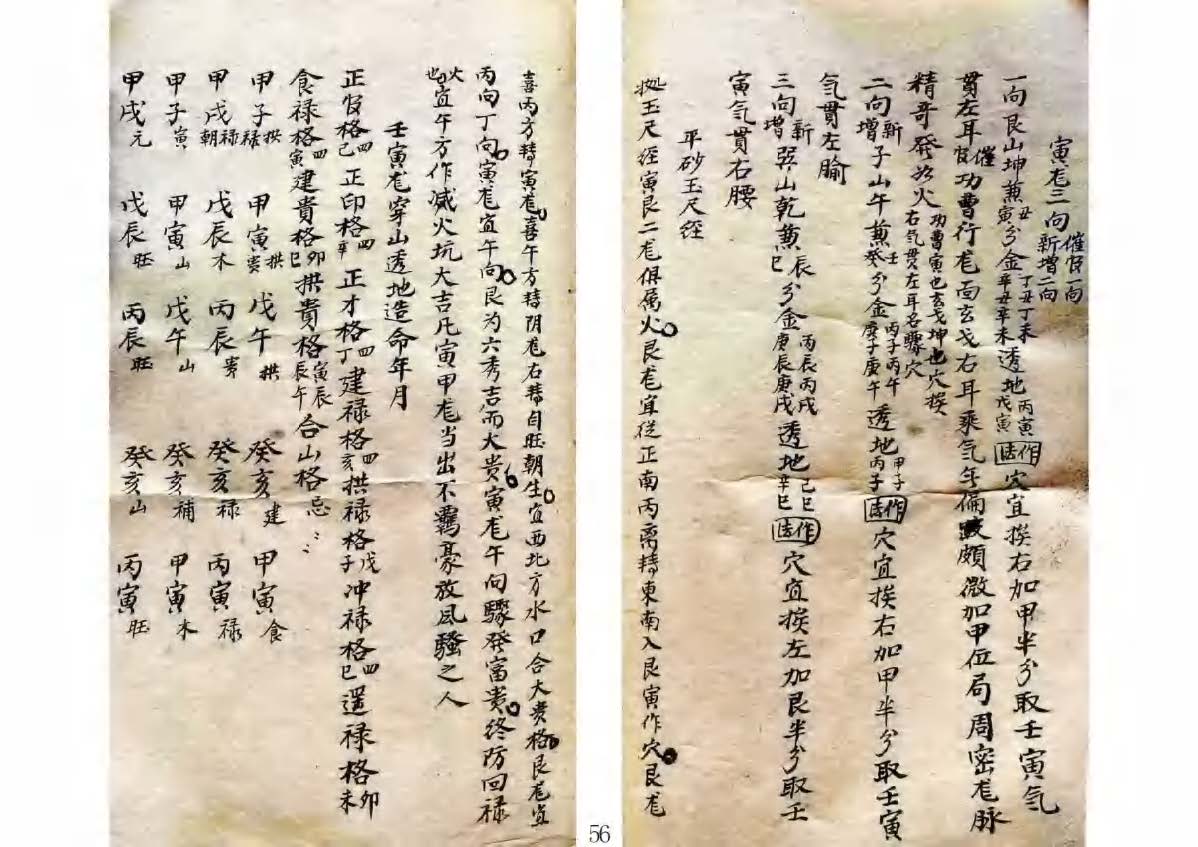 寅龙三向催官一向新增二向
一向艮山坤兼寅丑分金丁丑丁未辛丑辛未透地丙寅戊寅作法穴宜挨右加甲半分取壬寅气
贯左耳催官功曹行龙面玄戈右耳乘气年偏颇微加甲位局周密龙脉
精奇发必火功曹寅也玄戈坤也穴挨右气贯左耳名骤穴
二向新增子山午兼壬癸分金丙子丙午庚子庚午透地甲子丙子作法穴宜挨右加甲半分取壬寅
气贯左腧
三向新增巽山乾兼辰巳分金丙辰丙戌庚辰庚戌透地己巳辛巳作法穴宜挨左加艮半分取壬
寅气贯右腰
平砂玉尺经
玉尺经寅艮二龙俱属火艮龙宜从正南丙离转東南入艮寅作穴艮龙
喜丙方转寅龙喜午方转阴龙右转自旺朝生宜西北方水口合大贵格艮龙宜
丙向丁向寅龙宜午向艮为六秀吉而大贵寅龙午向骤发富贵终防回禄
火也宜午方作减火坑大吉凡寅甲龙当出不羁豪放风骚之人
壬寅龙穿山透地造命年月
正官格四己正印格四辛正才格四丁建禄格四亥拱禄格戊子冲禄格四巳遥禄格卯未
食禄格四寅建贵格卯巳拱贵格寅辰辰午合山格忌
甲子拱禄 甲寅拱贵 戊午拱 癸亥建 甲寅食
甲戌禄朝 戊辰木 丙辰贵 癸亥禄 丙寅禄
甲子寅 甲寅山 戊午山 癸亥補 甲寅木
甲戌元 戊辰旺 丙辰旺 癸亥山 丙寅旺
56